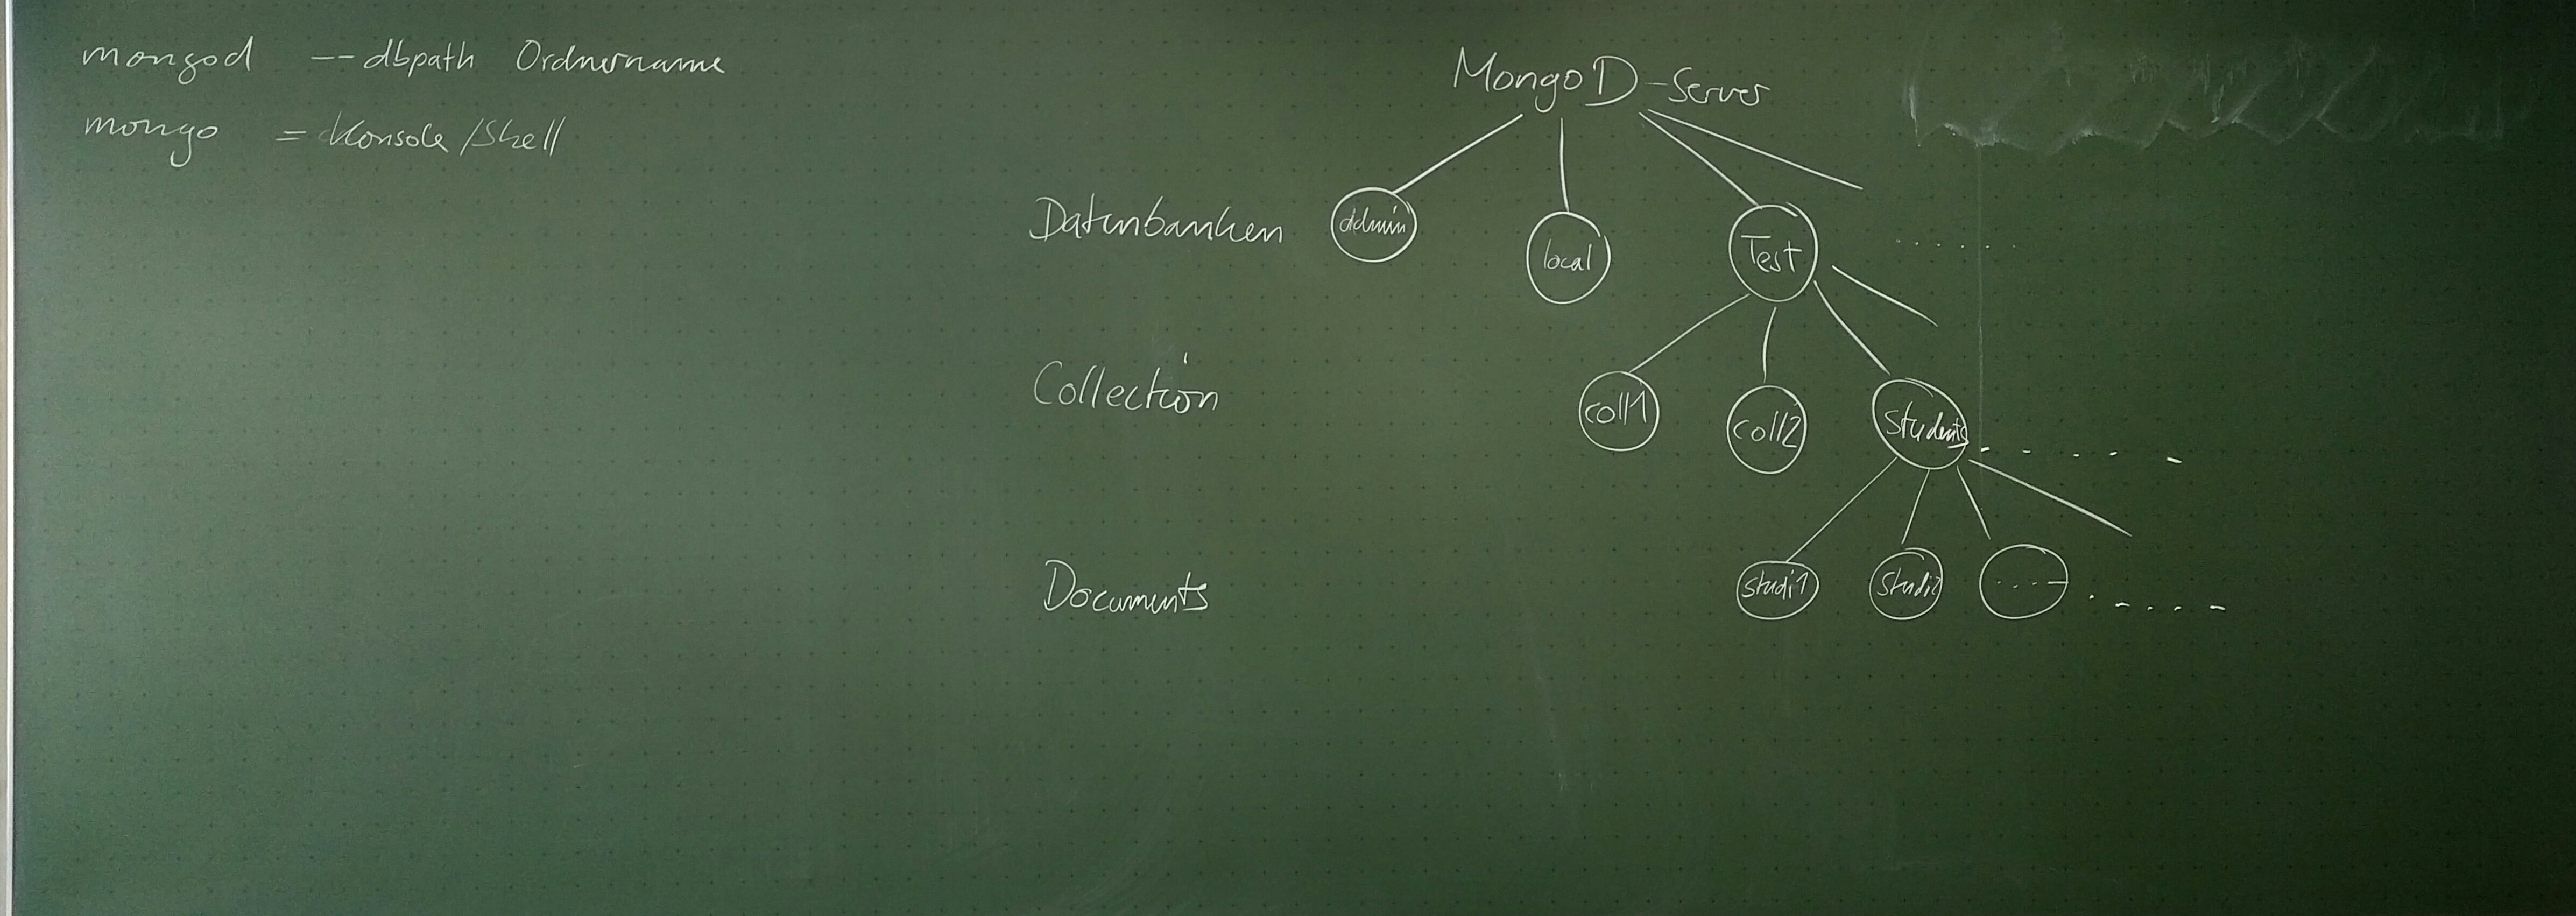 mongod --dbpath Ordnername
mongo = Konsole/Shell
MongoD-Server
Datenbanken admin local Test .......
Collection coll1 coll2 students - - - - - -
Documents studi1 studi2 ..... . - . - -